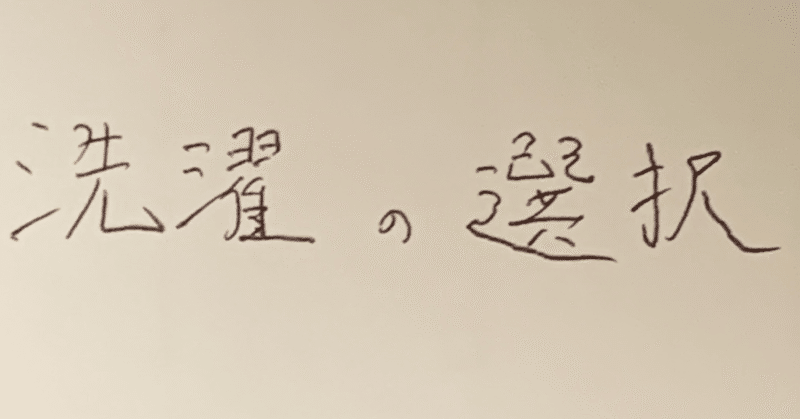 洗濯の選択